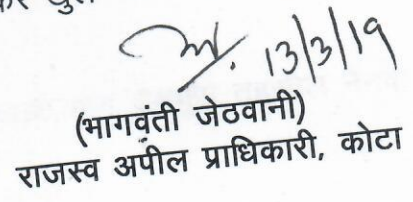 13/3/19
(भागवंती जेठवानी)
राजस्व अपील प्राधिकारी, कोटा